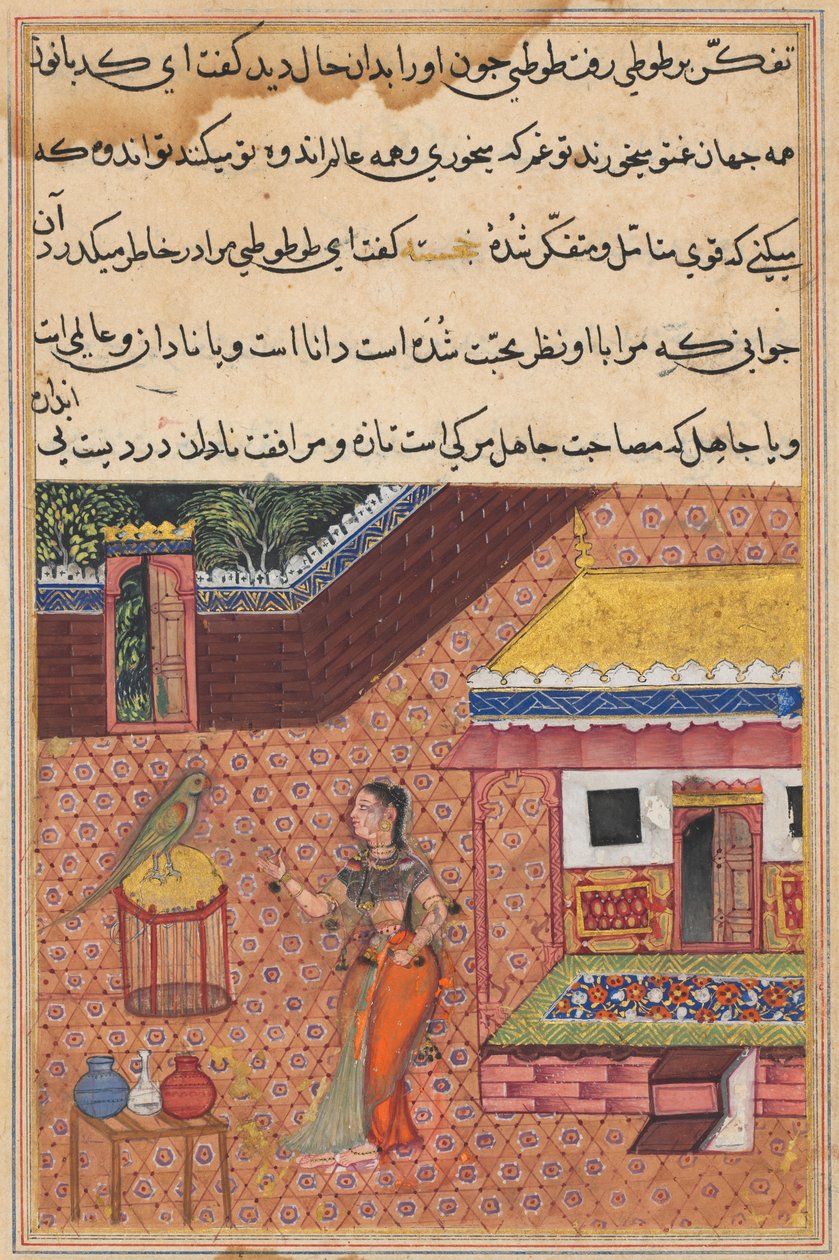 تفکّر بر طوطی رفت طوطی چون او را بدان حال دید گفت ای کدبانو
همه جهان غم تو میخورند تو غم که میخوری و همه عالم اندوه تو میکنند تو اندوه که
میکنی که قوی متامّل و متفکّر شدهٔ خجسته گفت ای طوطی مرا در خاطر میکدرد آن
جوانی که مرا با او نظر محبّت شُدَه است دانا است و یا نادان و عالمی است
و یا جاهل که مصاحبت جاهل مرکی است تازه و مرافقت نادان دردیست بی
اندازه